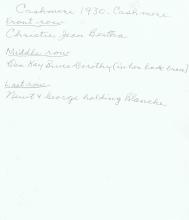 Cashmere 1930 - Cashmere
Front row
Christie Jean Bertha
Middle row
Kay Bruce Dorothy (in her
Last row
Newt & George holding Blanche